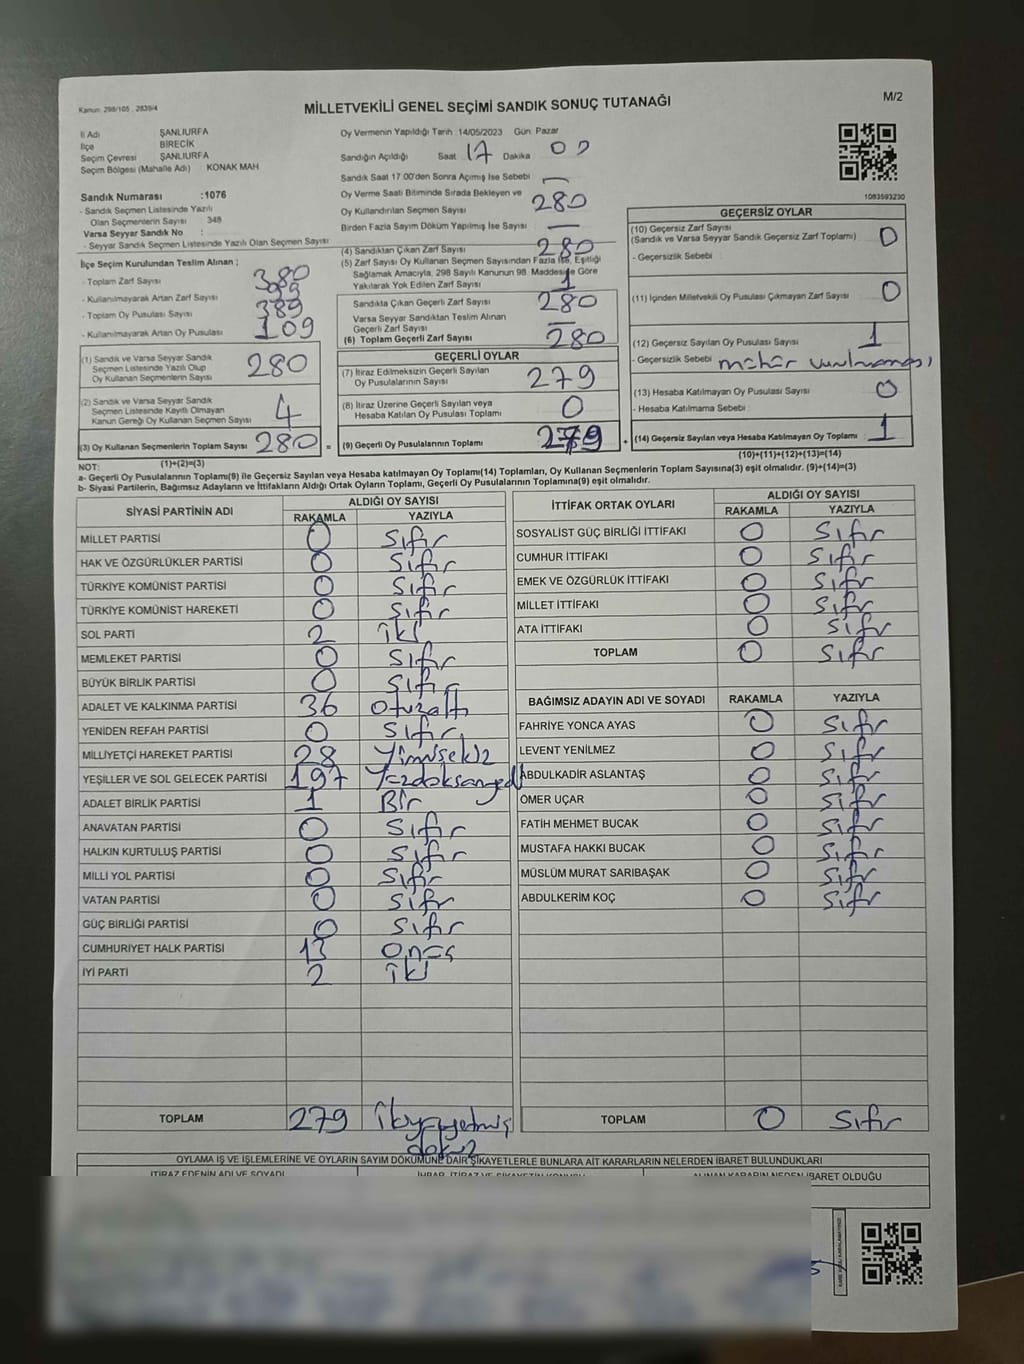 Kanun: 298/105 , 2839/4
MİLLETVEKİLİ GENEL SEÇİMİ SANDIK SONUÇ TUTANAĞI
M/2
İl Adı ŞANLIURFA
İlçe BİRECİK
Seçim Çevresi ŞANLIURFA
Seçim Bölgesi (Mahalle Adı) KONAK MAH
Sandık Numarası :1076
- Sandık Seçmen Listesinde Yazılı
Olan Seçmenlerin Sayısı 348
Varsa Seyyar Sandık No :
- Seyyar Sandık Seçmen Listesinde Yazılı Olan Seçmen Sayısı
İlçe Seçim Kurulundan Teslim Alınan ;
- Toplam Zarf Sayısı 380
- Kullanılmayarak Artan Zarf Sayısı
- Toplam Oy Pusulası Sayısı 389
- Kullanılmayarak Artan Oy Pusulası 109
(1) Sandık ve Varsa Seyyar Sandık
Seçmen Listesinde Yazılı Olup
Oy Kullanan Seçmenlerin Sayısı 280
(2) Sandık ve Varsa Seyyar Sandık
Seçmen Listesinde Kayıtlı Olmayan
Kanun Gereği Oy Kullanan Seçmen Sayısı 4
(3) Oy Kullanan Seçmenlerin Toplam Sayısı 280 =
(1)+(2)=(3)
Oy Vermenin Yapıldığı Tarih :14/05/2023 Gün: Pazar
Sandığın Açıldığı Saat 17 Dakika 00
Sandık Saat 17:00'den Sonra Açımış İse Sebebi —
Oy Verme Saati Bitiminde Sırada Bekleyen ve
Oy Kullandırılan Seçmen Sayısı 280
Birden Fazla Sayım Döküm Yapılmış İse Sayısı —
(4) Sandıktan Çıkan Zarf Sayısı 280
(5) Zarf Sayısı Oy Kullanan Seçmen Sayısından Fazla İse, Eşitliği
Sağlamak Amacıyla, 298 Sayılı Kanunun 98. Maddesine Göre
Yakılarak Yok Edilen Zarf Sayısı 1
Sandıkta Çıkan Geçerli Zarf Sayısı 280
Varsa Seyyar Sandıktan Teslim Alınan
Geçerli Zarf Sayısı —
(6) Toplam Geçerli Zarf Sayısı 280
GEÇERLİ OYLAR
(7) İtiraz Edilmeksizin Geçerli Sayılan
Oy Pusulalarının Sayısı 279
(8) İtiraz Üzerine Geçerli Sayılan veya
Hesaba Katılan Oy Pusulası Toplamı 0
(9) Geçerli Oy Pusulalarının Toplamı 279 +
1083593230
GEÇERSİZ OYLAR
(10) Geçersiz Zarf Sayısı
(Sandık ve Varsa Seyyar Sandık Geçersiz Zarf Toplamı) 0
- Geçersizlik Sebebi
(11) İçinden Milletvekili Oy Pusulası Çıkmayan Zarf Sayısı 0
(12) Geçersiz Sayılan Oy Pusulası Sayısı 1
- Geçersizlik Sebebi mühür vurulmaması
(13) Hesaba Katılmayan Oy Pusulası Sayısı 0
- Hesaba Katılmama Sebebi
(14) Geçersiz Sayılan veya Hesaba Katılmayan Oy Toplamı 1
(10)+(11)+(12)+(13)=(14)
NOT:
a- Geçerli Oy Pusulalarının Toplamı(9) ile Geçersiz Sayılan veya Hesaba katılmayan Oy Toplamı(14) Toplamları, Oy Kullanan Seçmenlerin Toplam Sayısına(3) eşit olmalıdır. (9)+(14)=(3)
b- Siyasi Partilerin, Bağımsız Adayların ve İttifakların Aldığı Oyların Toplamı, Geçerli Oy Pusulalarının Toplamına(9) eşit olmalıdır.
SİYASİ PARTİNİN ADI ALDIĞI OY SAYISI
RAKAMLA YAZIYLA
MİLLET PARTİSİ 0 Sıfır
HAK VE ÖZGÜRLÜKLER PARTİSİ 0 Sıfır
TÜRKİYE KOMÜNİST PARTİSİ 0 Sıfır
TÜRKİYE KOMÜNİST HAREKETİ 0 Sıfır
SOL PARTİ 2 İki
MEMLEKET PARTİSİ 0 Sıfır
BÜYÜK BİRLİK PARTİSİ 0 Sıfır
ADALET VE KALKINMA PARTİSİ 36 Otuzaltı
YENİDEN REFAH PARTİSİ 0 Sıfır
MİLLİYETÇİ HAREKET PARTİSİ 28 Yirmisekiz
YEŞİLLER VE SOL GELECEK PARTİSİ 197 Yüzdoksanyedi
ADALET BİRLİK PARTİSİ 1 Bir
ANAVATAN PARTİSİ 0 Sıfır
HALKIN KURTULUŞ PARTİSİ 0 Sıfır
MİLLİ YOL PARTİSİ 0 Sıfır
VATAN PARTİSİ 0 Sıfır
GÜÇ BİRLİĞİ PARTİSİ 0 Sıfır
CUMHURİYET HALK PARTİSİ 13 Onüç
İYİ PARTİ 2 İki
TOPLAM 279 İkiyüzyetmiş
dokuz
İTTİFAK ORTAK OYLARI ALDIĞI OY SAYISI
RAKAMLA YAZIYLA
SOSYALİST GÜÇ BİRLİĞİ İTTİFAKI 0 Sıfır
CUMHUR İTTİFAKI 0 Sıfır
EMEK VE ÖZGÜRLÜK İTTİFAKI 0 Sıfır
MİLLET İTTİFAKI 0 Sıfır
ATA İTTİFAKI 0 Sıfır
TOPLAM 0 Sıfır
BAĞIMSIZ ADAYIN ADI VE SOYADI RAKAMLA YAZIYLA
FAHRİYE YONCA AYAS 0 Sıfır
LEVENT YENİLMEZ 0 Sıfır
ABDULKADİR ASLANTAŞ 0 Sıfır
ÖMER UÇAR 0 Sıfır
FATİH MEHMET BUCAK 0 Sıfır
MUSTAFA HAKKI BUCAK 0 Sıfır
MÜSLÜM MURAT SARIBAŞAK 0 Sıfır
ABDULKERİM KOÇ 0 Sıfır
TOPLAM 0 Sıfır
OYLAMA İŞ VE İŞLEMLERİNE VE OYLARIN SAYIM DÖKÜMÜNE DAİR ŞİKAYETLERLE BUNLARA AİT KARARLARIN NELERDEN İBARET BULUNDUKLARI
İTİRAZ EDENİN ADI VE SOYADI İHBAR, İTİRAZ VE ŞİKAYETİN KONUSU ALINAN KARARIN NEDEN İBARET OLDUĞU